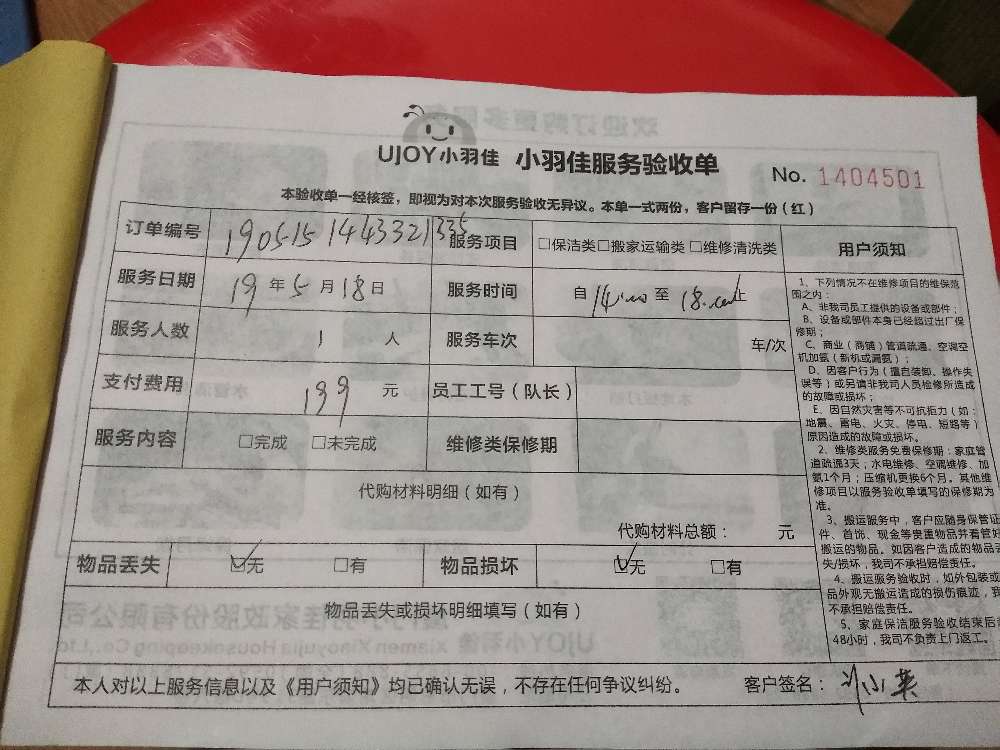 UJOY小羽佳 小羽佳服务验收单
No. 1404501
本验收单一经核签，即视为对本次服务验收无异议。本单一式两份，客户留存一份（红）
订单编号 190515 1443321335 服务项目 □保洁类□搬家运输类□维修清洗类
服务日期 19年5月18日 服务时间 自14:00至18:00止
服务人数 1 人 服务车次 车/次
支付费用 199 元 员工工号（队长）
服务内容 □完成 □未完成 维修类保修期
代购材料明细（如有）
代购材料总额： 元
物品丢失 ☑无 □有 物品损坏 ☑无 □有
物品丢失或损坏明细填写（如有）
本人对以上服务信息以及《用户须知》均已确认无误，不存在任何争议纠纷。 客户签名：
用户须知
1、下列情况不在维修项目的维保范
围之内：
A、非我司员工提供的设备或部件；
B、设备或部件本身已经超过出厂保
修期；
C、商业（商铺）管道疏通、空调空
机加氨（新机或漏氨）；
D、因客户行为（擅自装卸、操作失
误等）或另请非我司人员检修所造成
的故障或损坏；
E、因自然灾害等不可抗拒力（如：
地震、雷电、火灾、停电、短路等）
原因造成的故障或损坏。
2、维修类服务免费保修期：家庭管
道疏通3天；水电维修、空调维修、加
氨1个月；压缩机更换6个月。其他维
修项目以服务验收单填写的保修期为
准。
3、搬运服务中，客户应随身保管证
件、首饰、现金等贵重物品并看管好
搬运的物品。如因客户造成的物品丢
失/损坏，我司不承担赔偿责任。
4、搬运服务验收时，如外包装或
品外观无搬运造成的损伤痕迹，我
不承担赔偿责任。
5、家庭保洁服务验收结束后
48小时，我司不负责上门返工。
Xiamen Xiaoyujia Housekeeping Co.,Ltd.